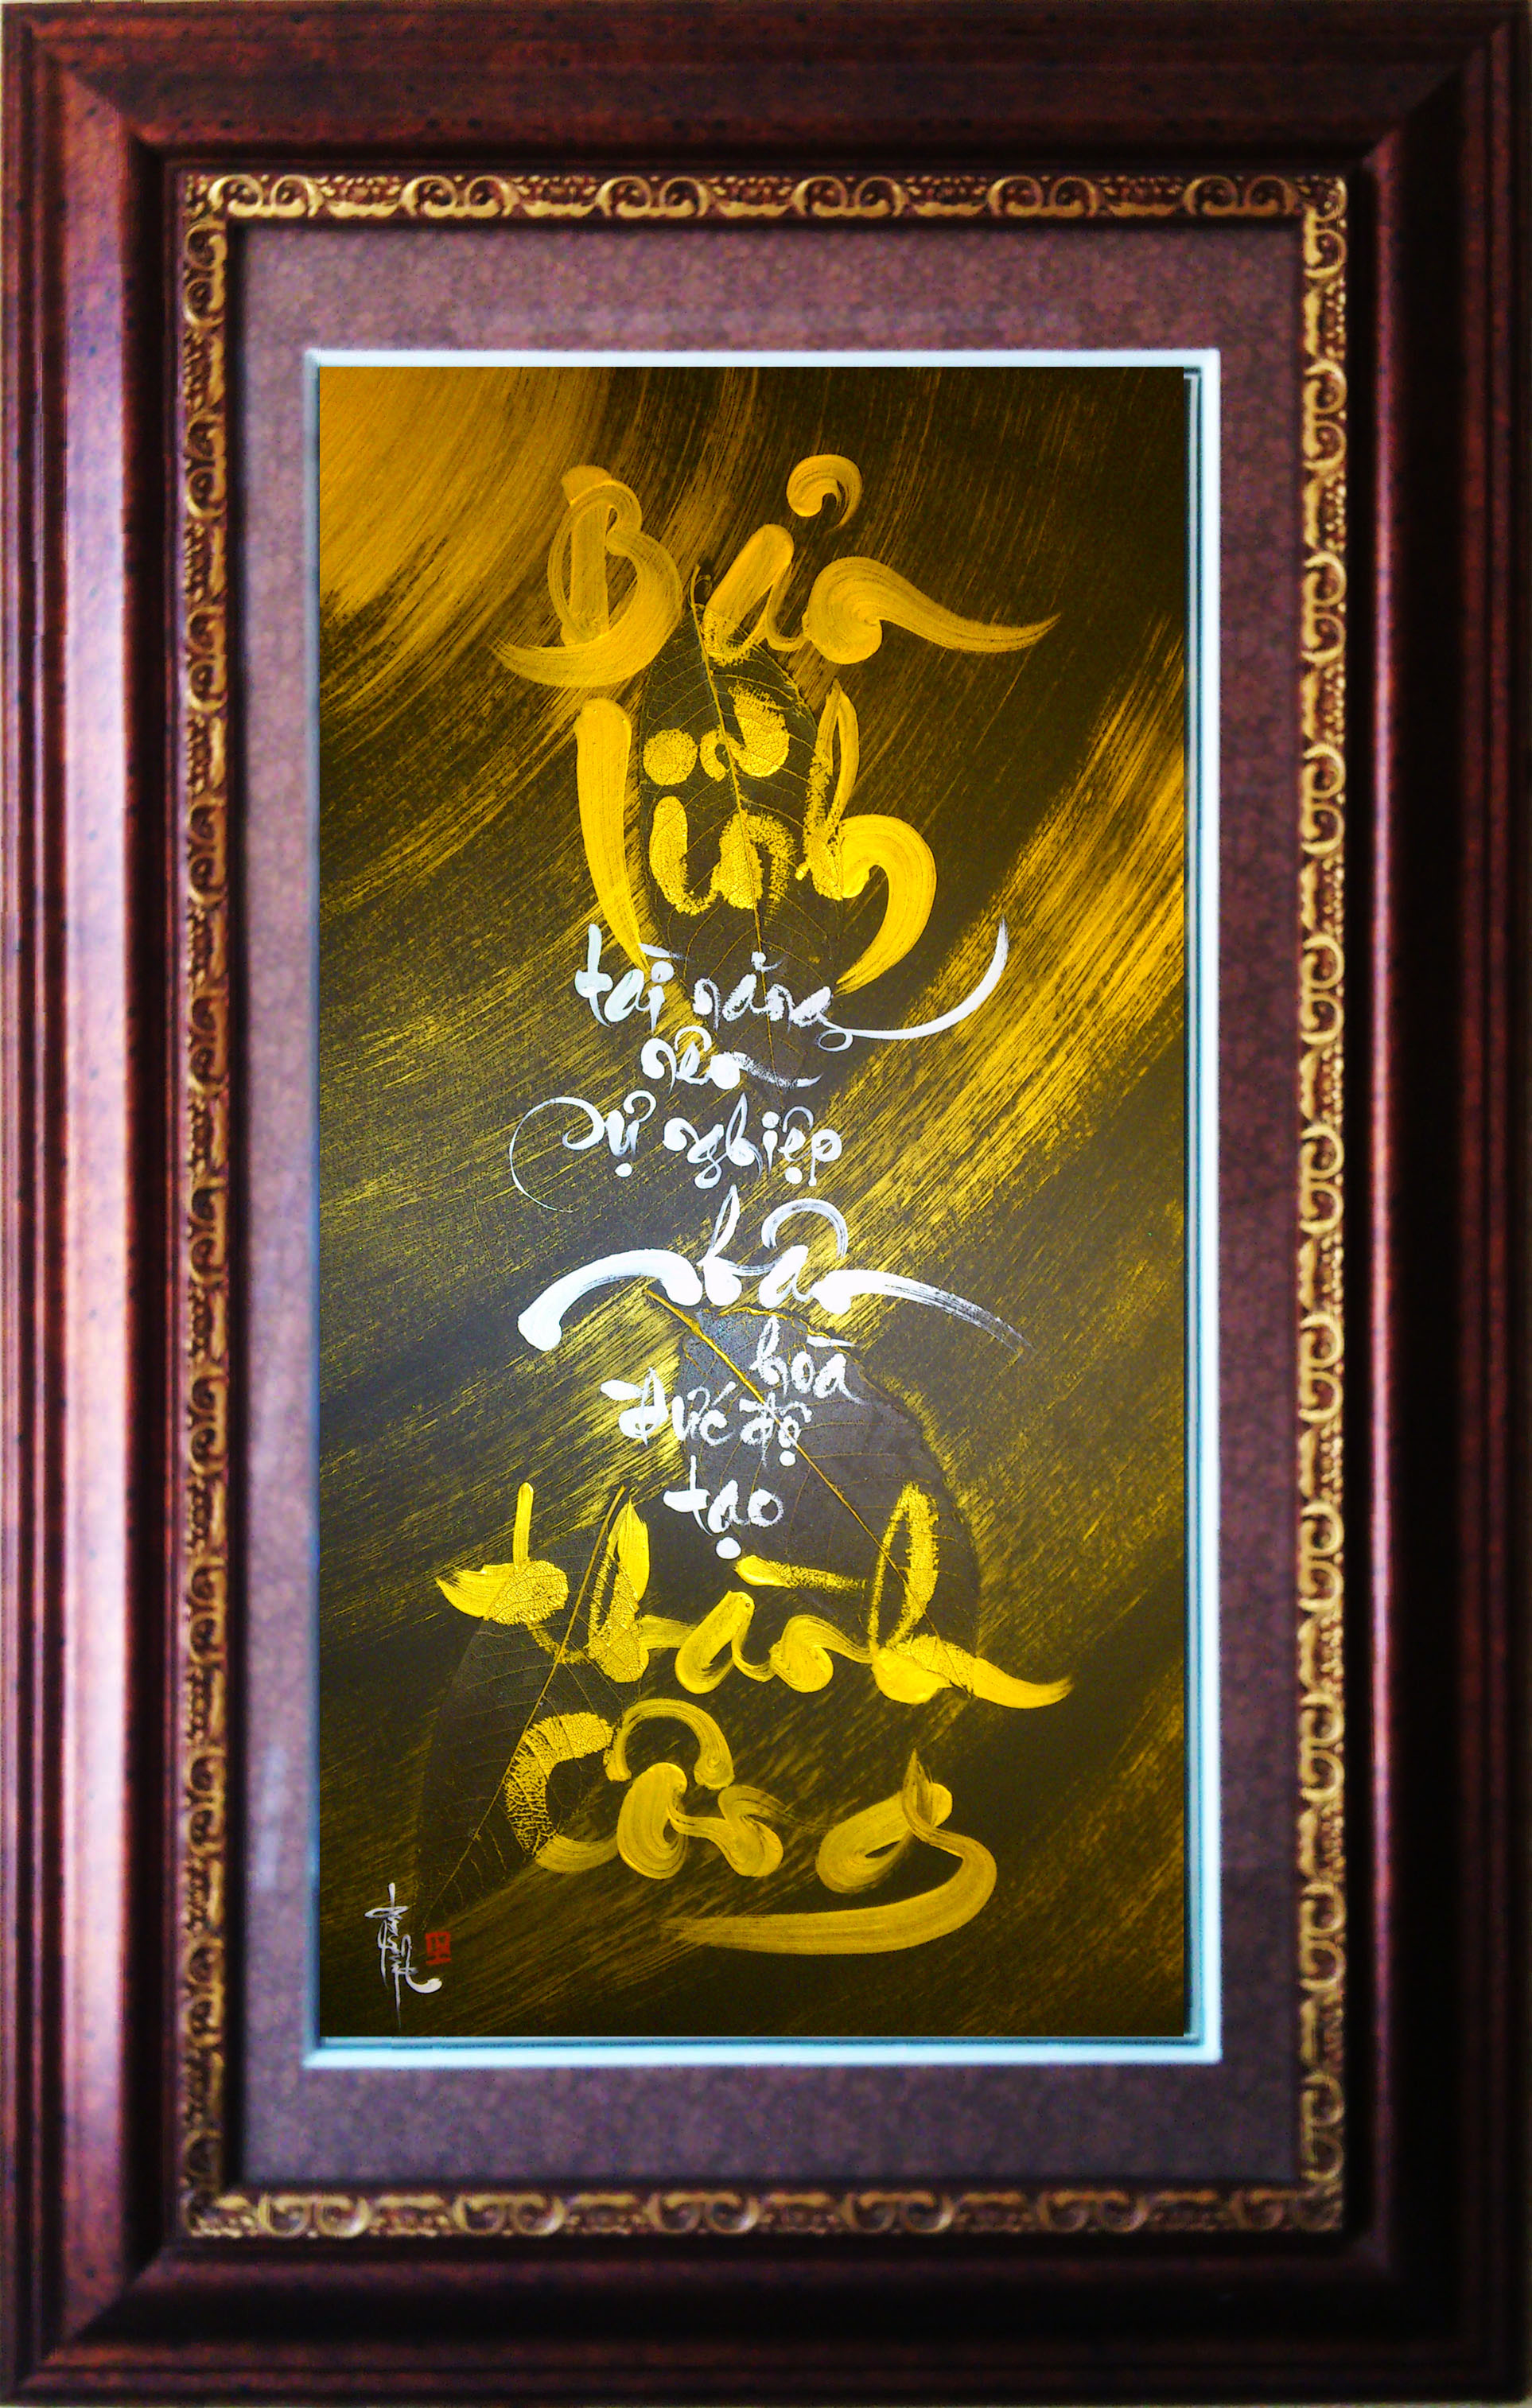 Bản
lĩnh
tài năng
nên
sự nghiệp
nhân
hoà
đức độ
tạo
thành
công